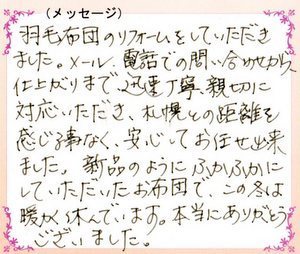 (メッセージ)
羽毛布団のリフォームをしていただき
ました。メール、電話での問い合わせから、
仕上がりまで、迅速丁寧、親切に
対応いただき、札幌との距離を
感じる事なく、安心してお任せ出来
ました。新品のようにふかふかに
していただいたお布団で、この冬は
暖かく休んでいます。本当にありがとう
ございました。